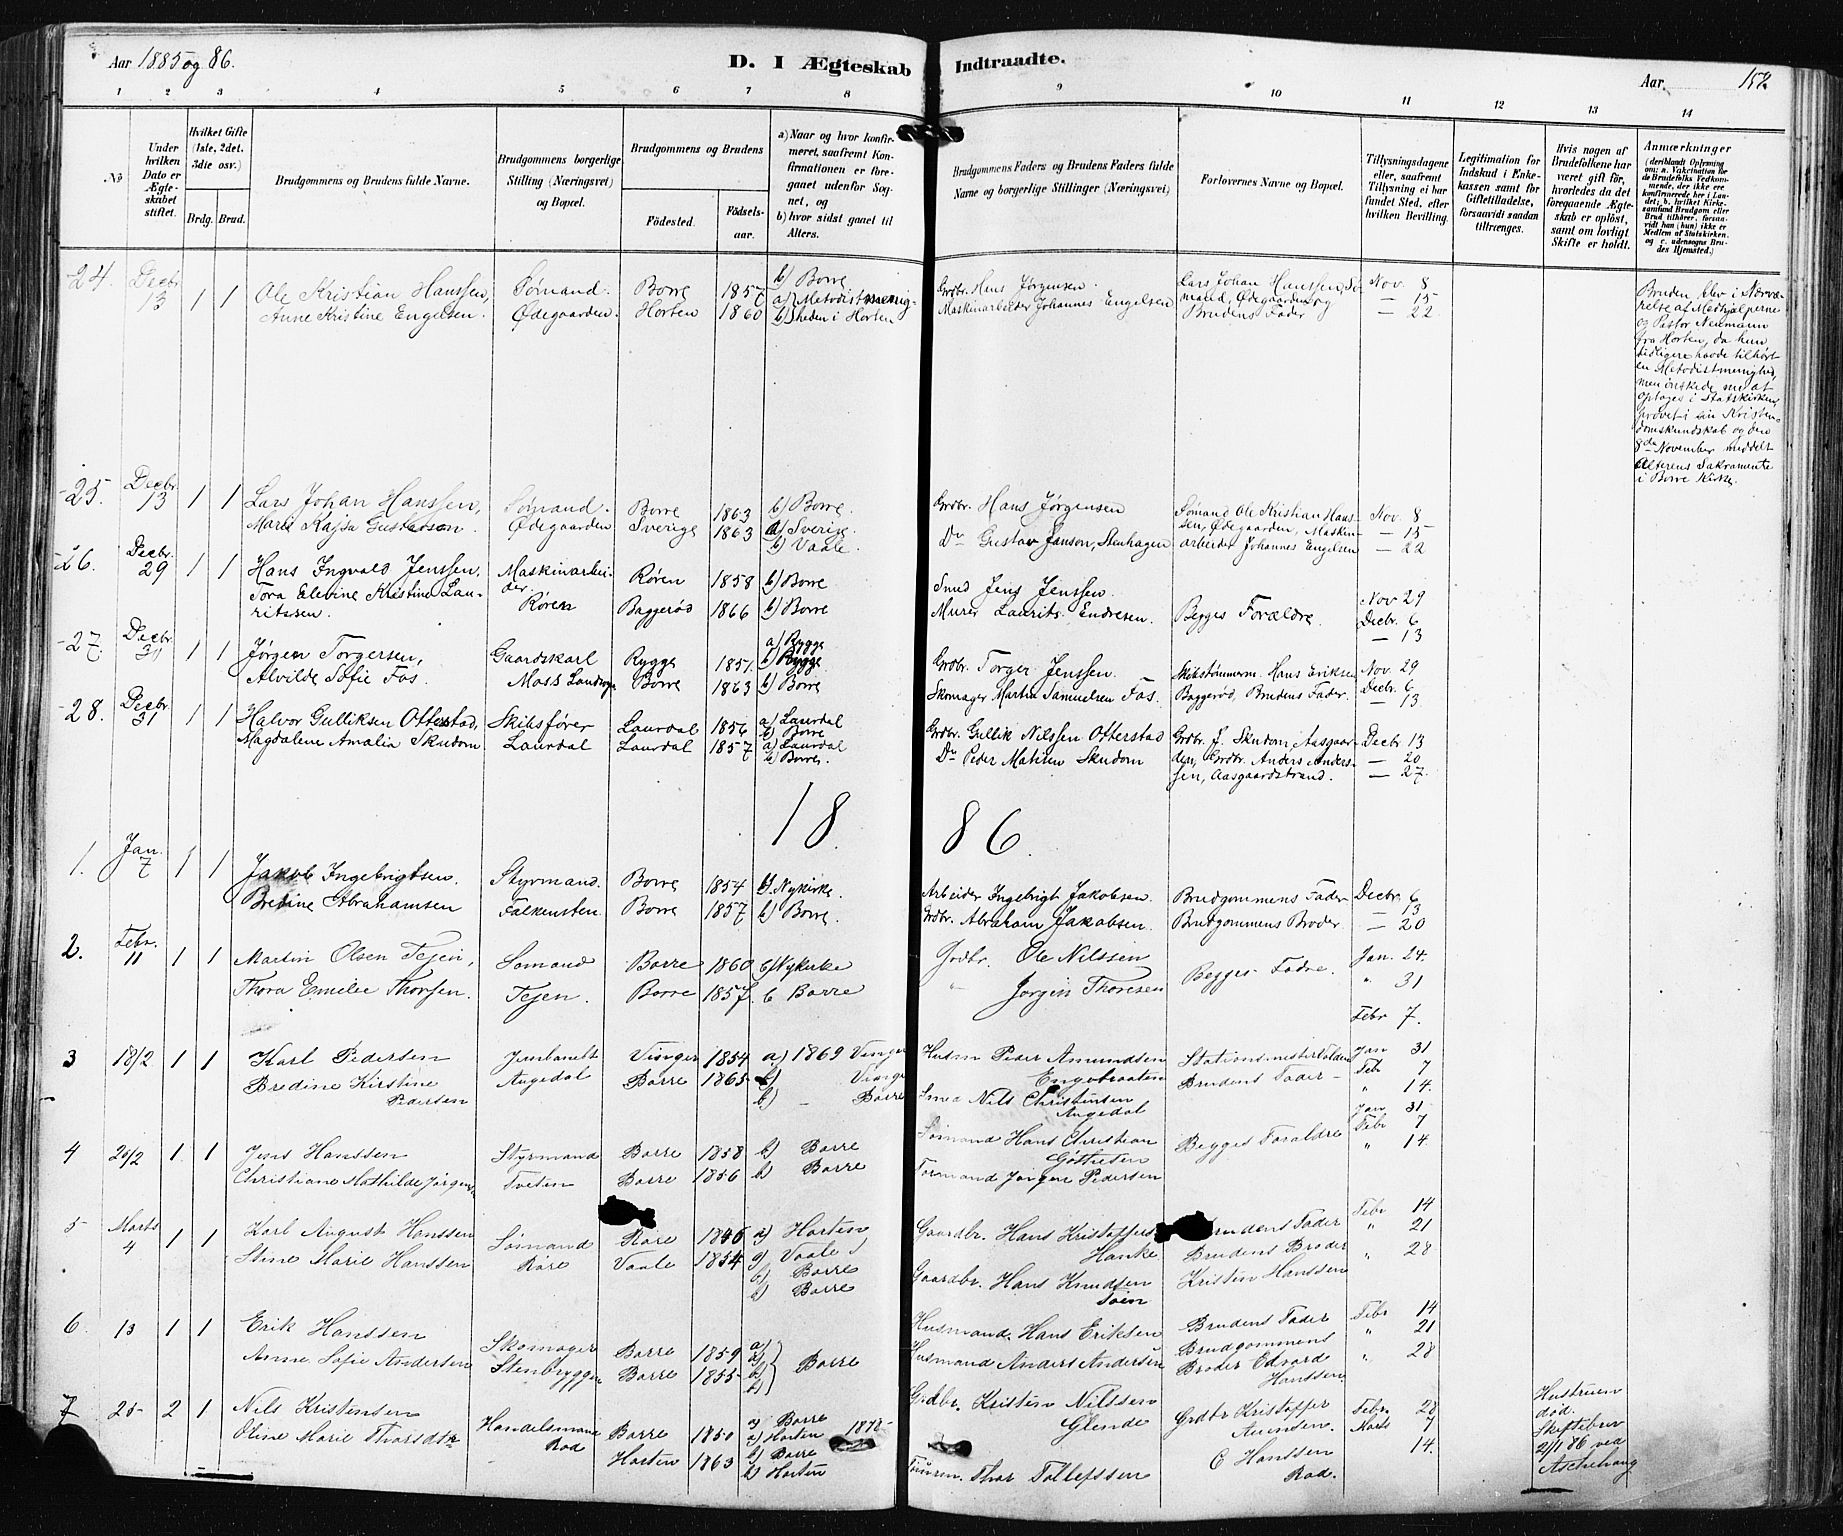 Aar 1885 og 86.
D. I Ægteskab Indtraadte.
Aar 152.
1 2 3 4 5 6 7 8 9 10 11 12 13 14
No
Under hvilken Dato er Ægteskabet stiftet.
Hvilket Gifte (1ste, 2det, 3die osv.)
Brdg. Brud.
Brudgommens og Brudens fulde Navne.
Brudgommens borgerlige Stilling (Næringsvei) og Bopæl.
Brudgommens og Brudens
Fødested.
Fødselsaar.
a) Naar og hvor konfirmeret, saafremt Konfirmationen er foregaaet udenfor Sognet, og
b) hvor sidst gaaet til Alters.
Brudgommens Faders og Brudens Faders fulde Navne og borgerlige Stillinger (Næringsvei)
Forlovernes Navne og Bopæl.
Tillysningsdagene eller, saafremt Tillysning ei har fundet Sted, efter hvilken Bevilling.
Legitimation for Indskud i Enkekassen samt for Giftetilladelse, forsaavidt saadan tiltrænges.
Hvis nogen af Brudefolkene har været gift før, hvorledes da det foregaaende Ægteskab er opløst, samt om lovligt Skifte er holdt.
Anmærkninger
24. Decbr 13 1 1 Ole Kristian Hanssen, Sømand. Borre 1857 b) Borre Grdbr. Hans Jørgensen Lars Johan Hanssen, Sømand, Ødegaarden og Nov. 8
Anne Kristine Engelsen. Ødegaarden. Horten 1860 a) Metodistmenigheden i Horten Maskinarbeider Johannes Engelsen Brudens Fader — 15 — 22
Bruden blev i Nærværelse af Medhjælperne
og Pastor Neumann
fra Horten, da hun
tidligere havde tilhørt
en Metodistmenighed,
men ønskede nu at
optages i Statskirken,
prøvet i sin Kristendomskundskab og den
8de November meddelt
Alterens Sakramente
i Borre Kirke.
25. Decbr 13 1 1 Lars Johan Hanssen, Sømand. Borre 1863 b) Borre. Grdbr. Hans Jørgensen Sømand Ole Kristian Hanssen, Ødegaarden, Maskinarbeider Johannes Engelsen Nov. 8
Maria Kajsa Gustavson. Ødegaarden Sverige 1863 a) Sverige. b) Vaale. Do Gustav Janson, Stenhagen — 15 — 22
26. Decbr. 29 1 1 Hans Ingvald Jenssen. Maskinarbeider. Røren 1858 b) Borre Smed Jens Jenssen. Begges Forældre. Nov 29
Tora Elevine Kristine Lauritssen. Røren Baggerød 1866 b) Borre Murer Laurits Endresen. Decbr. 6 — 13
27. Decbr. 31 1 1 Jørgen Torgersen, Gaardskarl Rygge 1851. a) Rygge b) Rygge Grdbr. Torger Jenssen. Skibstømmerm. Hans Eriksen Nov. 29
Alvilde Sofie Fos. Moss Landsogn Borre 1863 b) Borre Skomager Martin Samuelsen Fos. Baggerød, Brudens Fader. Decbr. 6 — 13
28. Decbr 31 1 1 Halvor Gulliksen Otterstad, Skibsfører Laurdal 1856 a) Laurdal b) Borre Grdbr. Gullik Nilssen Otterstad Grdbr. J. Skudom, Aasgaarden, Grdbr. Anders Anderssen, Aasgaardstrand. Decbr 13
Magdalene Amalia Skudom Laurdal Laurdal 1857 a) Laurdal b) Borre. Do Peder Matisen Skudom — 20 — 27.
18 86.
1. Jan. 7 1 1 Jakob Ingebrigtsen. Styrmand. Borre 1854 b) Nykirke. Arbeider Ingebrigt Jakobsen. Brudgommens Fader Decbr. 6
Bredine Abrahamsen Falkensten. Borre 1857 b) Borre. Grdbr. Abraham Jakobsen. Brudgommens Broder. — 13 — 20
2. Febr. 11 1 1 Martin Olsen Tejen, Sømand Borre 1860 b) Nykirke Grdbr. Ole Nilssen Begges Fædre. Jan. 24.
Thora Emilie Thorsen. Tejen. Borre 1857. b Borre " Jørgen Thoresen " 31 Febr 7.
3 18/2 1 1 Karl Pedersen Vinger 1854 a) 1869 Vinger Husm Peder Amundsen Engebraaten Jan 31
Bredine Kirstine Pedersen Augedal Borre 1865 b) Vinger b) — Borre Smed Nils Christensen Augedal Brudens Fader Feb 7 " 14.
4 25/2 1 1 Jens Hanssen Styrmand Borre 1858 b) Borre Sømand Hans Christian Begges Forældre Jan 31
Christiane Mathilde Jørgens. Tveten Borre 1856 b) Borre Formand Jørgen Pedersen Feb 7 " 14
5 Marts 4 1 1 Karl August Hanssen Sømand Røre 1846 a) Horten Gaardbr. Hans Kristoffers Hanke Brudens Fader Febr 14
Stine Marie Hanssen Røre Vaale 1854 a) Vaale b) Borre b) Borre Gaardbr. Hans Knudsen Brudens Broder Kristen Hanssen " 21 " 28
6 13 1 1 Erik Hanssen Skomager Borre 1859 a) a) Husmand Hans Eriksen Brudens Fader Febr 14
Anne Sofie Andersen Stenbryggen Borre 1855 b) b) Borre Husmand Anders Andersen Brudgommens Broder Edvard Hanssen " 21 " 28
7 25 2 1 Nils Kristensen Handelsmand Borre 1850 a) Borre 1878 a) Horten Grdbr. Kristen Nilssen Glende Grdbr Kristoffer Febr. 28
Oline Marie Thorsdtr Rød Horten 1863 b) Borre b) Horten Thor Tollefssen C Hanssen Rød. Marts 7 14.
Hustruen
død.
Skiftebrev
2/1 86 ved
Aschehoug